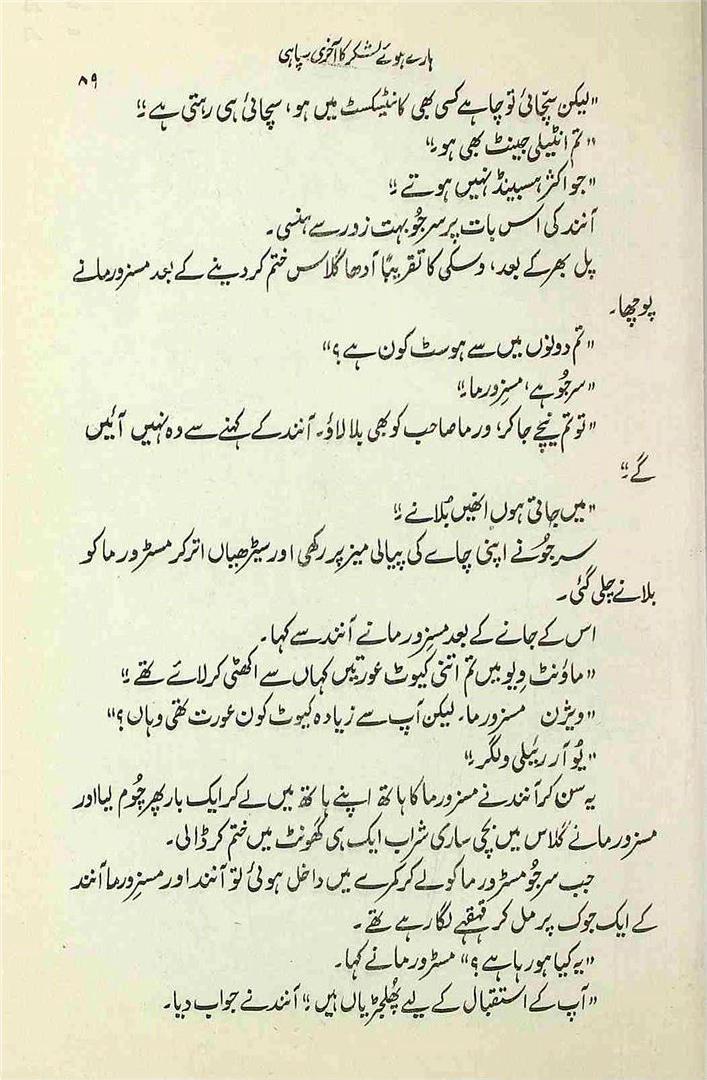 ہارے ہوئے لشکر کا آخری سپاہی
۸۹
"لیکن سچّائی تو چاہے کسی بھی کانٹیکسٹ میں ہو، سچائی ہی رہتی ہے۔"
"تم انٹیلی جینٹ بھی ہو۔"
"جو اکثر ہسبینڈ نہیں ہوتے۔"
آنند کی اس بات پر سرجُو بہت زور سے ہنسی۔
پل بھر کے بعد، وسکی کا تقریباً آدھا گلاس ختم کر دینے کے بعد مسز ورما نے
پوچھا۔
"تم دونوں میں سے ہوسٹ کون ہے؟"
"سرجُو ہے، مسز ورما۔"
"تو تم نیچے جاکر، ورما صاحب کو بھی بلا لاؤ۔ آنند کے کہنے سے وہ نہیں آئیں
گے۔"
"میں جاتی ہوں انھیں بُلانے۔"
سرجُو نے اپنی چاے کی پیالی میز پر رکھی اور سیڑھیاں اتر کر مسٹر ورما کو
بلانے چلی گئی۔
اس کے جانے کے بعد مسز ورما نے آنند سے کہا۔
"ماؤنٹ وِیو میں تم اتنی کیوٹ عورتیں کہاں سے اکھٹی کر لائے تھے۔"
"ویژن مسز ورما۔ لیکن آپ سے زیادہ کیوٹ کون عورت تھی وہاں؟"
"یُو آر رئیلی ولگر۔"
یہ سن کر آنند نے مسز ورما کا ہاتھ اپنے ہاتھ میں لے کر ایک بار پھر چُوم لیا اور
مسز ورما نے گلاس میں بچی ساری شراب ایک ہی گھونٹ میں ختم کر ڈالی۔
جب سرجُو مسٹر ورما کو لے کر کمرے میں داخل ہوئی تو آنند اور مسز ورما آنند
کے ایک جوک پر مل کر قہقہے لگا رہے تھے۔
"یہ کیا ہو رہا ہے؟" مسٹر ورما نے کہا۔
"آپ کے استقبال کے لیے پُھلجڑیاں ہیں۔" آنند نے جواب دیا۔